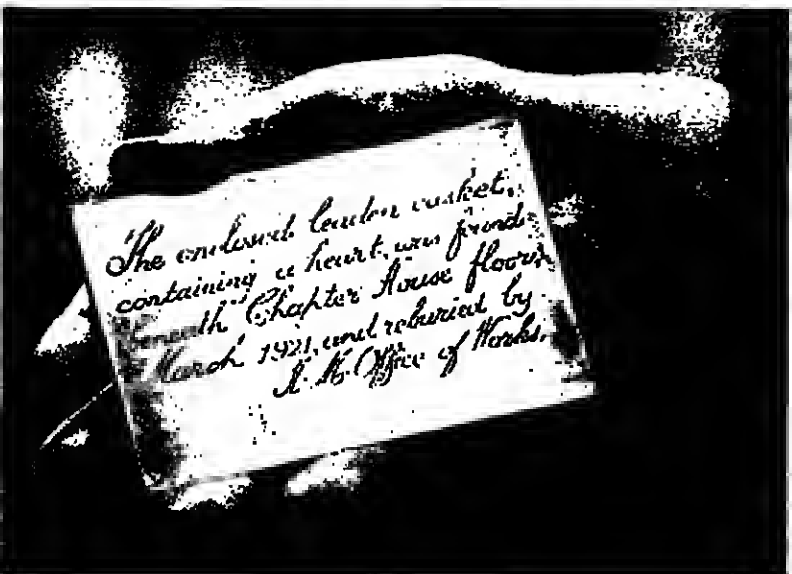 The enclosed leaden casket,
containing a heart, was found
beneath Chapter House floor,
March 1921, and reburied by
H. M. Office of Works.